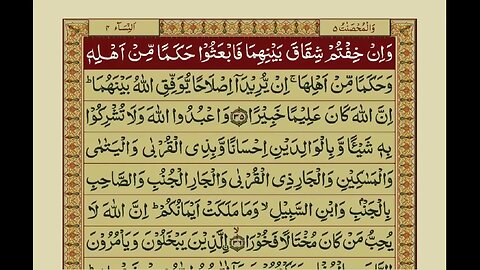 وَالْمُحْصَنٰتُ ٥
اَلنِّسَآء ٤
وَاِنْ خِفْتُمْ شِقَاقَ بَيْنِهِمَا فَابْعَثُوْا حَكَمًا مِّنْ اَهْلِهٖ
وَحَكَمًا مِّنْ اَهْلِهَا ۚ اِنْ يُّرِيْدَاۤ اِصْلَاحًا يُّوَفِّقِ اللّٰهُ بَيْنَهُمَا ؕ
اِنَّ اللّٰهَ كَانَ عَلِيْمًا خَبِيْرًا ﴿٣٥﴾ وَاعْبُدُوا اللّٰهَ وَلَا تُشْرِكُوْا
بِهٖ شَيْئًا وَّ بِالْوَالِدَيْنِ اِحْسَانًا وَّبِذِى الْقُرْبٰى وَالْيَتٰمٰى
وَالْمَسٰكِيْنِ وَالْجَارِ ذِى الْقُرْبٰى وَالْجَارِ الْجُنُبِ وَالصَّاحِبِ
بِالْجَنْۢبِ وَابْنِ السَّبِيْلِ ۙ وَمَا مَلَكَتْ اَيْمَانُكُمْ ؕ اِنَّ اللّٰهَ لَا
يُحِبُّ مَنْ كَانَ مُخْتَالًا فَخُوْرَا ۙ﴿٣٦﴾ الَّذِيْنَ يَبْخَلُوْنَ وَيَاْمُرُوْنَ